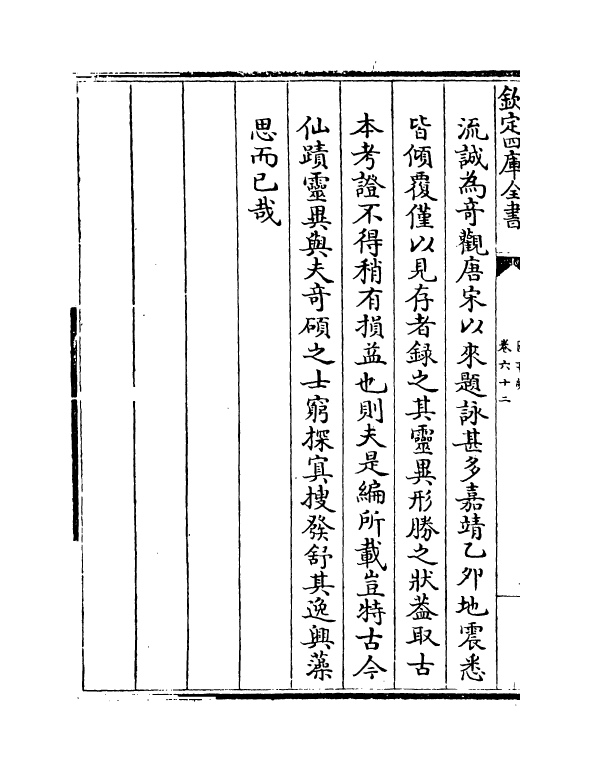 欽定四庫全書
卷六十二
流誠為奇觀唐宋以來題詠甚多嘉靖乙夘地震悉
皆傾覆僅以見存者録之其靈異形勝之狀葢取古
本考證不得稍有損益也則夫是編所載豈特古今
仙蹟靈異與夫竒碩之士窮探㝠搜發舒其逸興藻
思而已哉